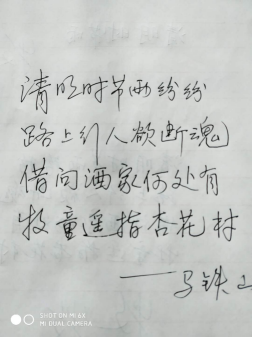 清明时节雨纷纷
路上行人欲断魂
借问酒家何处有
牧童遥指杏花村
——马铁
SHOT ON MI 6X
MI DUAL CAMERA